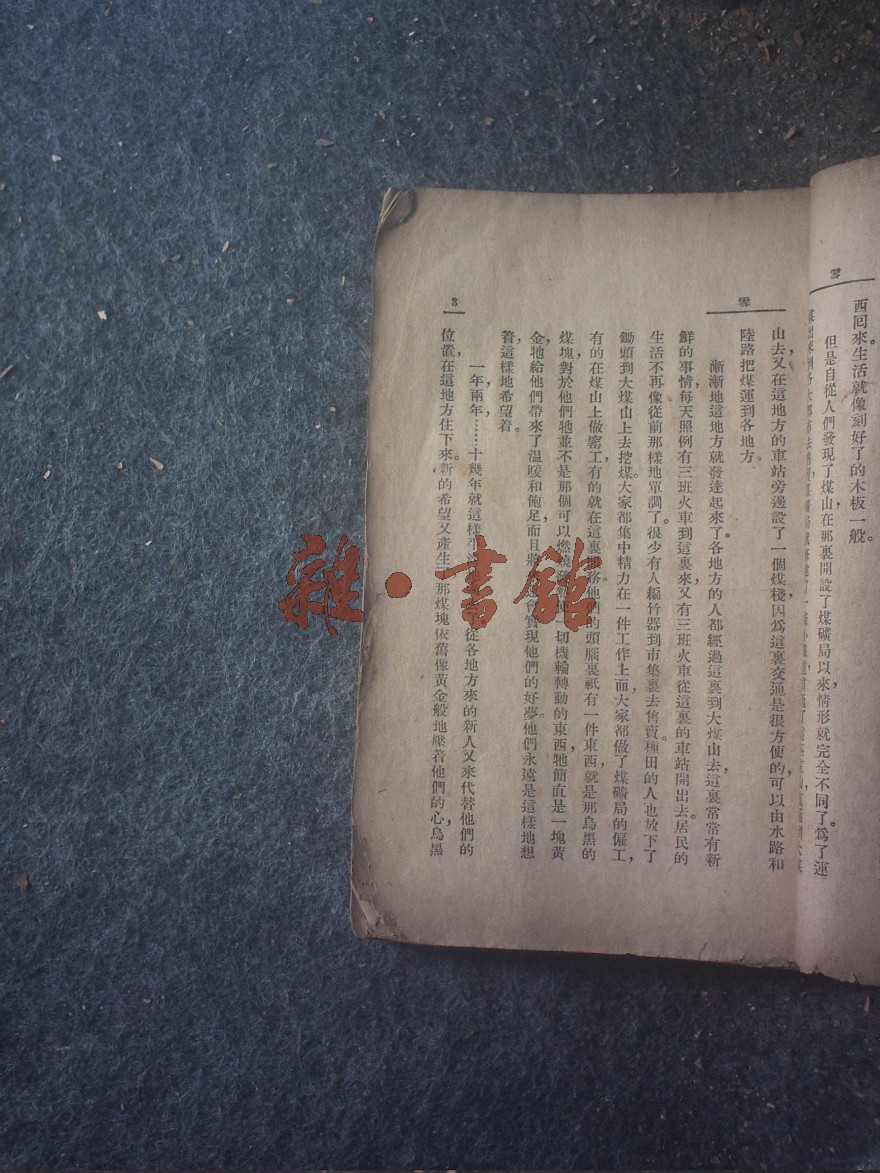 雪
西回來。生活就像刻好了的木板一般。
但是自從人們發現了煤山，在那裏開設了煤礦局以來，情形就完全不同了。爲了運
雪
山去，又在這地方的車站旁邊設了一個煤棧，因爲這裏交通是很方便的，可以由水路和
陸路把煤運到各地方。
漸漸地這地方就發達起來了。各地方的人都經過這裏到大煤山去，這裏常常有新
鮮的事情，每天照例有三班火車到這裏來，又有三班火車從這裏的車站開出去。居民的
生活不再像從前那樣地單調了。很少有人編竹器到市集裏去售賣，種田的人也放下了
鋤頭到大煤山上去挖煤。大家都集中精力在一件工作上面，大家都做了煤礦局的僱工，
有的在煤山上做窰工，有的就在這裏 他們的頭腦裏祇有一件東西，就是那烏黑的
煤塊，對於他們牠並不是那個可以燃燒 切機輪轉動的東西，牠簡直是一塊黃
金，牠給他們帶來了溫暖和飽足，而且將 實現他們的好夢。他們永遠是這樣地想
着，這樣地希望着。
一年，兩年，……十幾年就這樣平 從各地方來的新人又來代替他們的
位置，在這地方住下來。新的希望又產生 那煤塊依舊像黃金般地壓着他們的心，烏黑
3
雜·書館